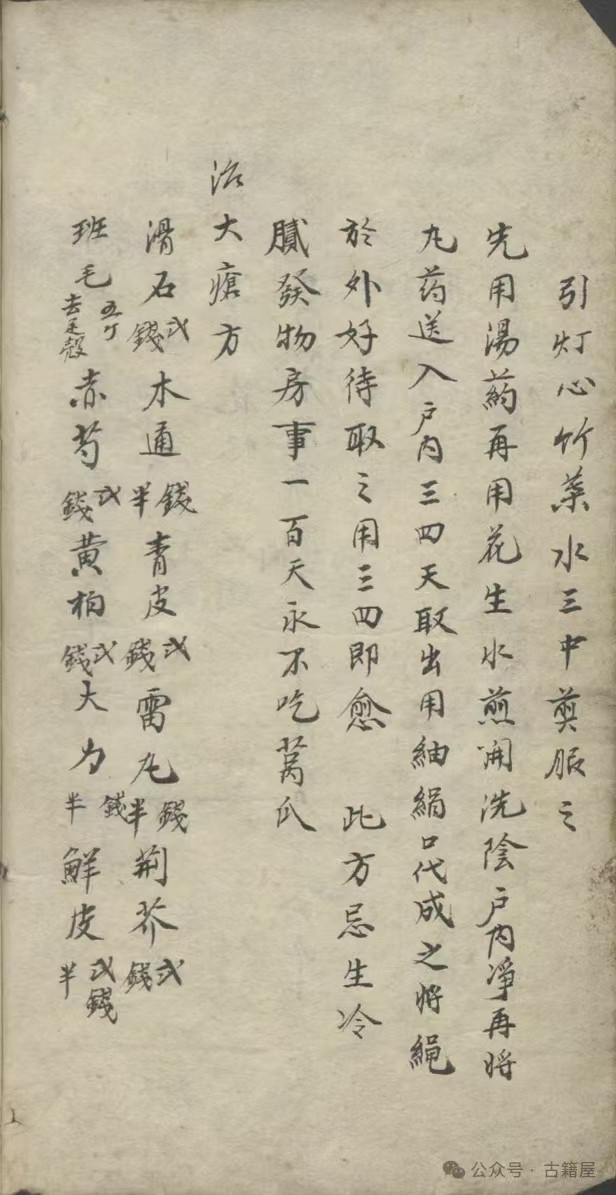 引灯心竹葉水三中煎服之
先用湯药再用花生水煎開洗陰户内凈再將
丸药送入户内三四天取出用紬絹口代成之將繩
於外好待取之用三四即愈 此方忌生冷
腻發物房事一百天永不吃萵瓜
治大瘡方
滑石弍錢 木通錢半 青皮弍錢 雷丸錢半 荆芥弍錢
班毛五个去足殼 赤芍弍錢 黄柏弍錢 大力錢半 鮮皮弍錢半
公众号·古籍屋